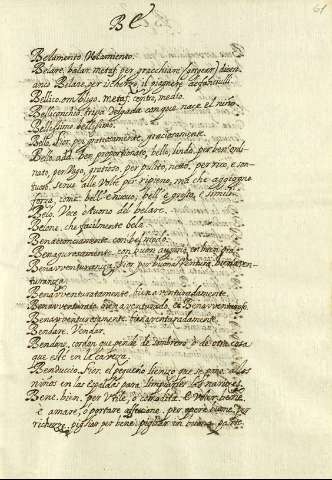 61
Be
Belamento. Balamiento.
Belare. balar. metaf. per gracchiare
anco Belare, per scherzo, il piagnere de fanciulli.
Bellico. ombligo. metaf. centro, medio
Belliconchio. tripa delgada con que nace el niño
Bellissimo. bellissimo.
Bello. Fior. per gratiosamente, graciosamente.
Bello. add. Ben proportionato, bello, lindo, per ben ordi-
nato, per vago, gratioso, per pulito, netto, per ricco, e son-
tuoso. Serve alle volte per ripieno, ma che aggiogne
forza, come bell'e nuovo, bell'e fresco, e simile.
Belo. Voce è suono del belare.
Belone. che facilmente bela
Benaventurosamente. con buon augurio, en buen
Benavventuranza. Fior. per buona ventura, bienaven-
turança.
Benavventuratamente. bienaventuradamente.
Benavventurato. bienaventurado.
Benavventurosamente. bienaventuradamente.
Bendare. Vendar.
Bendone. cordon que pende de sombrero ò de otra cosa
que esté en la caveça.
Benduccio. Fior. el pequeño lienço que se pone a los
niños en las espaldas para limpiarles las narizes.
Bene. bien. per Utile, ò comodità. e Voler bene
è amare, ò portare affezione. per opere buone. per
richezza. pigliar per bene. pigliar en buena parte.